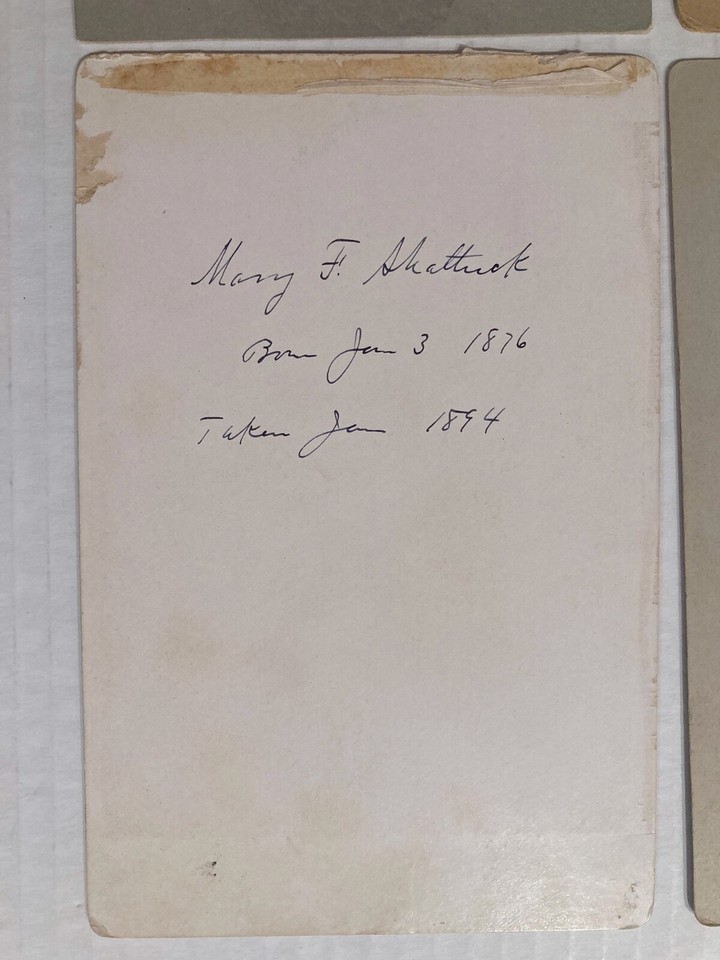 Mary F. Shattuck
Born Jan 3 1876
Taken Jan 1894